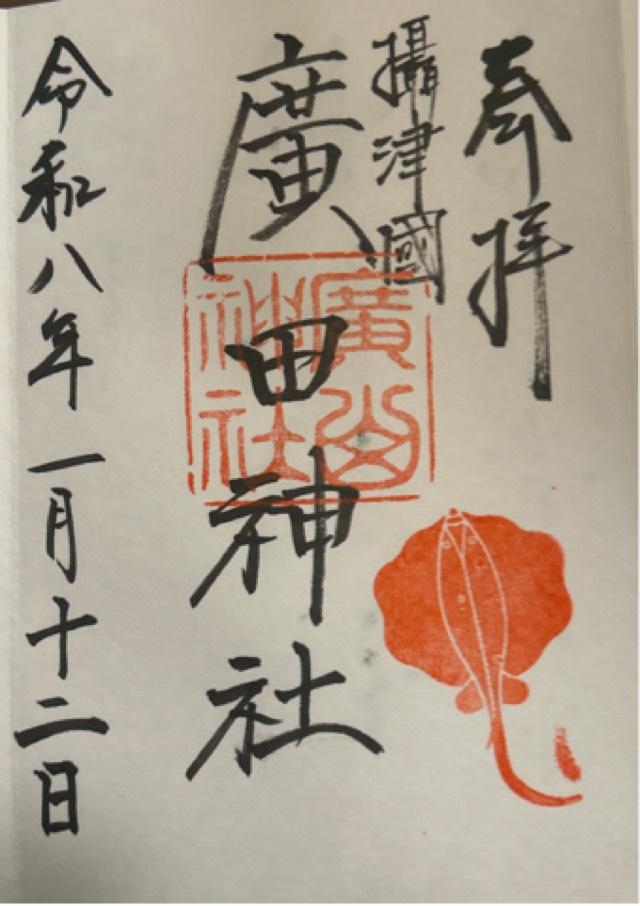 奉拝
攝津國
廣田神社
廣田
神社
令和八年一月十二日